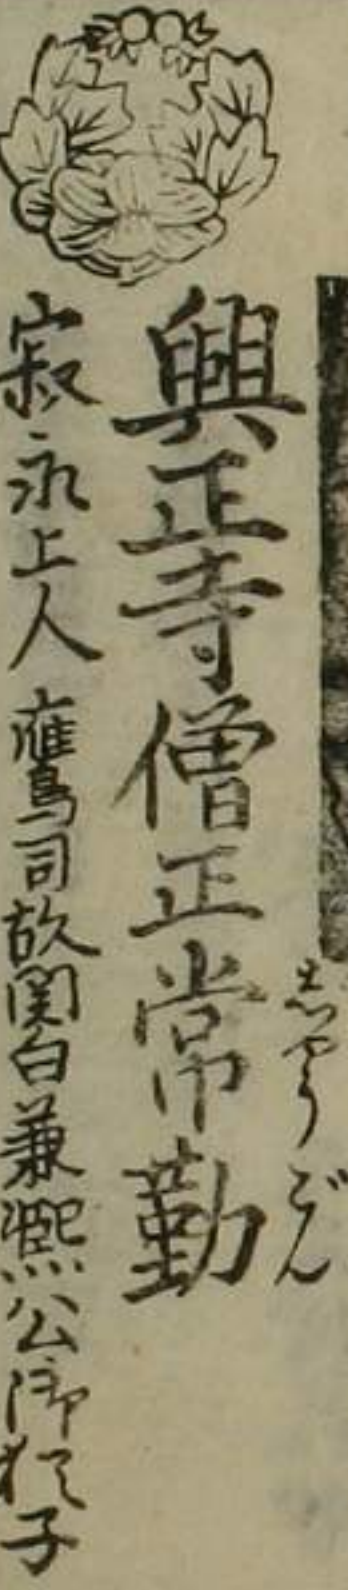 興正寺僧正常勤
志やうごん
寂永上人鷹司故関白兼熈公御猶子